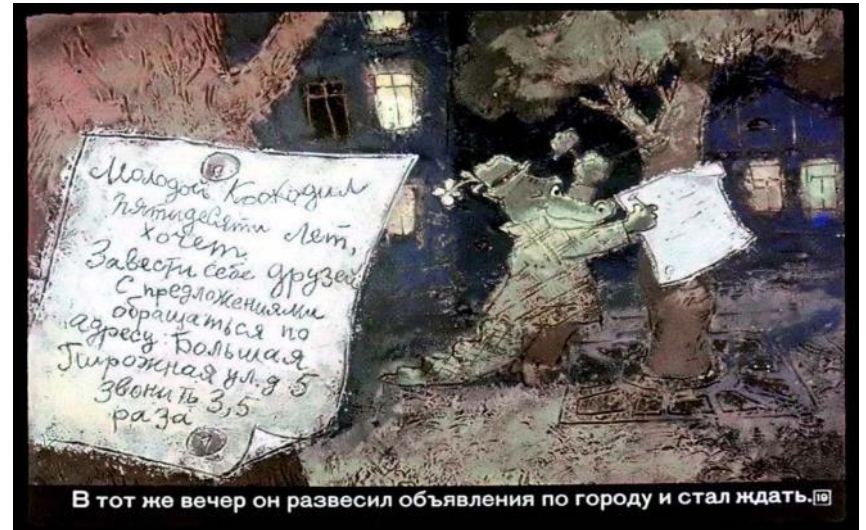 Молодой Кокодил
пятидесяти лет,
хочет
Завести себе друзей
С предложениями
обращаться по
адресу: Большая
Пирожная ул. д 5
звонить 3,5
раза
В тот же вечер он развесил объявления по городу и стал ждать. 19